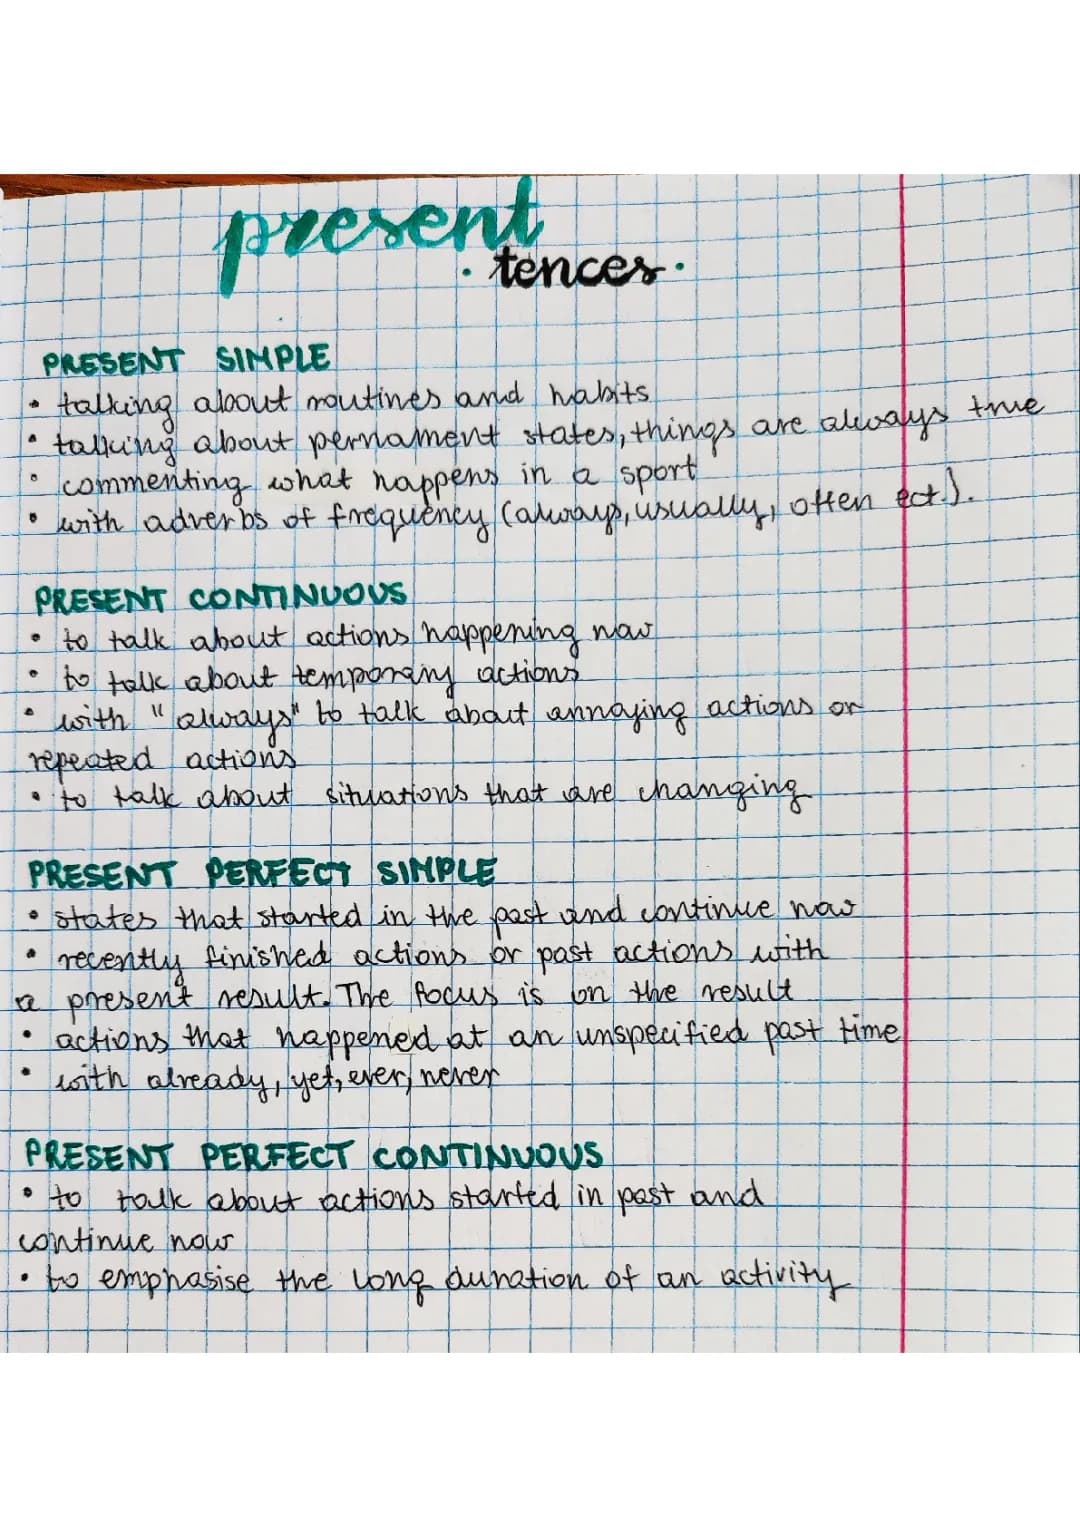 present
· tences ·
PRESENT SIMPLE
• talking about routines and habits
• talking about pernament states, things are always true
• commenting what happens in a sport
• with adverbs of frequency (always, usually, often ect.).
PRESENT CONTINUOUS
• to talk about actions happening now
• to talk about temporary actions
• with "always" to talk about annoying actions or
repeated actions
• to talk about situations that are changing
PRESENT PERFECT SIMPLE
• states that started in the past and continue now
• recently finished actions or past actions with
a present result. The focus is on the result
• actions that happened at an unspecified past time
• with already, yet, ever, never
PRESENT PERFECT CONTINUOUS
• to talk about actions started in past and
continue now
• to emphasise the long duration of an activity